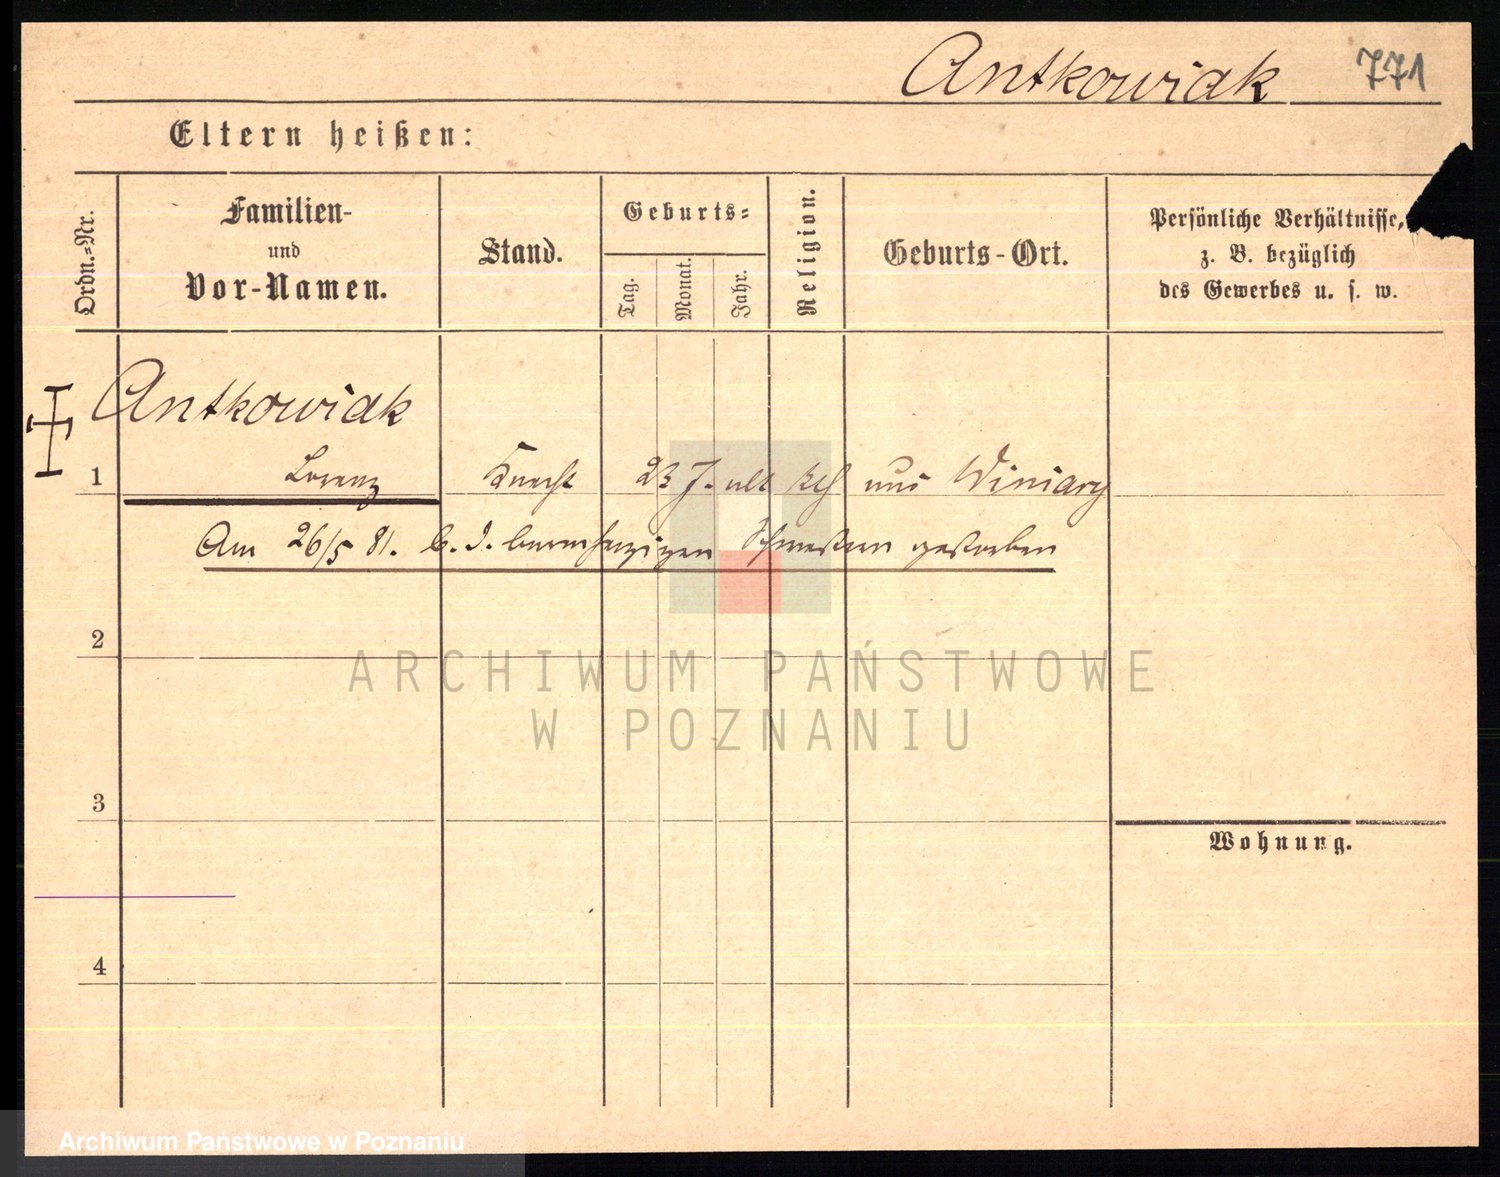 Antkowiak 771
Eltern heißen:
Ordn.-Nr.
Familien-
und
Vor-Namen.
Stand.
Geburts-
Tag.
Monat.
Jahr.
Religion.
Geburts-Ort.
Persönliche Verhältnisse,
z. B. bezüglich
des Gewerbes u. s. w.
Antkowiak
1 Lorenz Knecht 23 J. alt kth aus Winiary
Am 26/5 81. b. d. barmherzigen Schwestern gestorben
2
ARCHIWUM PAŃSTWOWE
W POZNANIU
3
Wohnung.
4
Archiwum Państwowe w Poznaniu